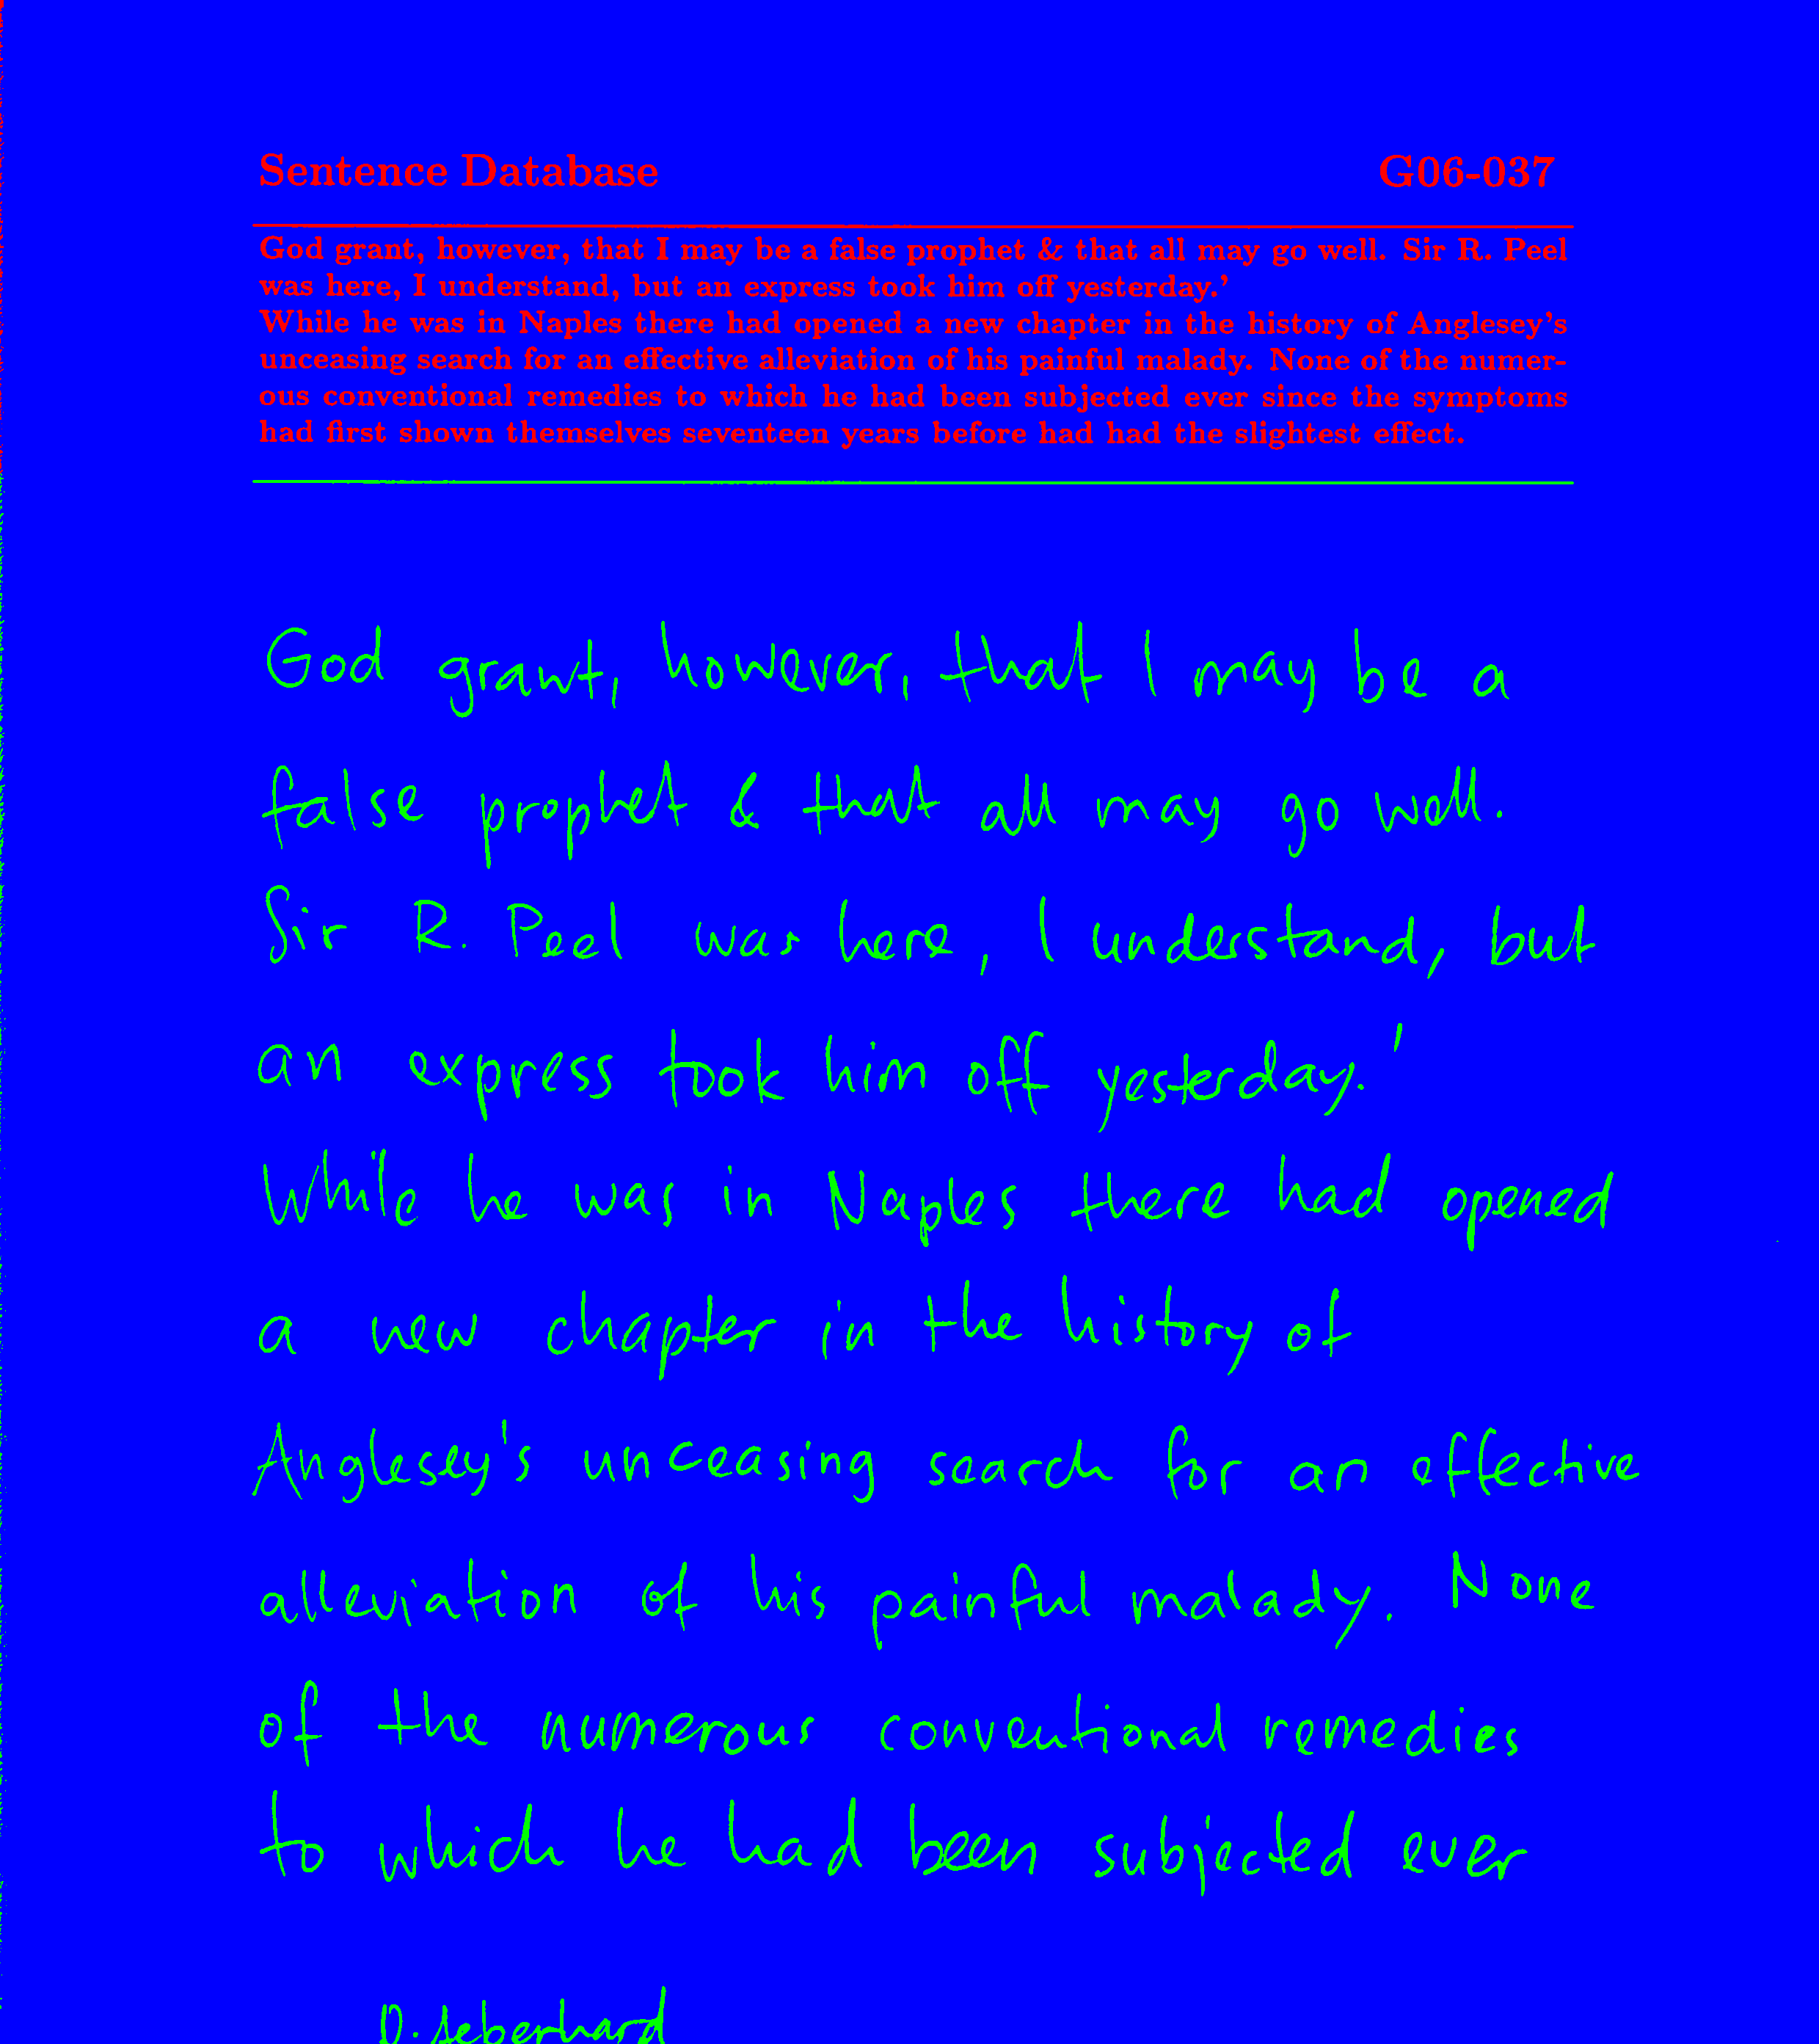 Sentence Database G06-037
God grant, however, that I may be a false prophet & that all may go well. Sir R. Peel
was here, I understand, but an express took him off yesterday.'
While he was in Naples there had opened a new chapter in the history of Anglesey's
unceasing search for an effective alleviation of his painful malady. None of the numer-
ous conventional remedies to which he had been subjected ever since the symptoms
had first shown themselves seventeen years before had had the slightest effect.
God grant, however, that I may be a
false prophet & that all may go well.
Sir R. Peel was here, I understand, but
an express took him off yesterday.'
While he was in Naples there had opened
a new chapter in the history of
Anglesey's unceasing search for an effective
alleviation of his painful malady. None
of the numerous conventional remedies
to which he had been subjected ever
D. Aeberhard